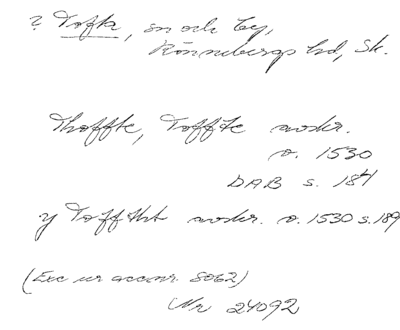 ? Tofta, sn och by,
Rönnebergs hd, Sk.
Thoffte, Toffte
o. 1530
DAB s. 184
y Tofftht o. 1530 s. 189
(Exc ur acc.nr. 8062)
Nr 24092